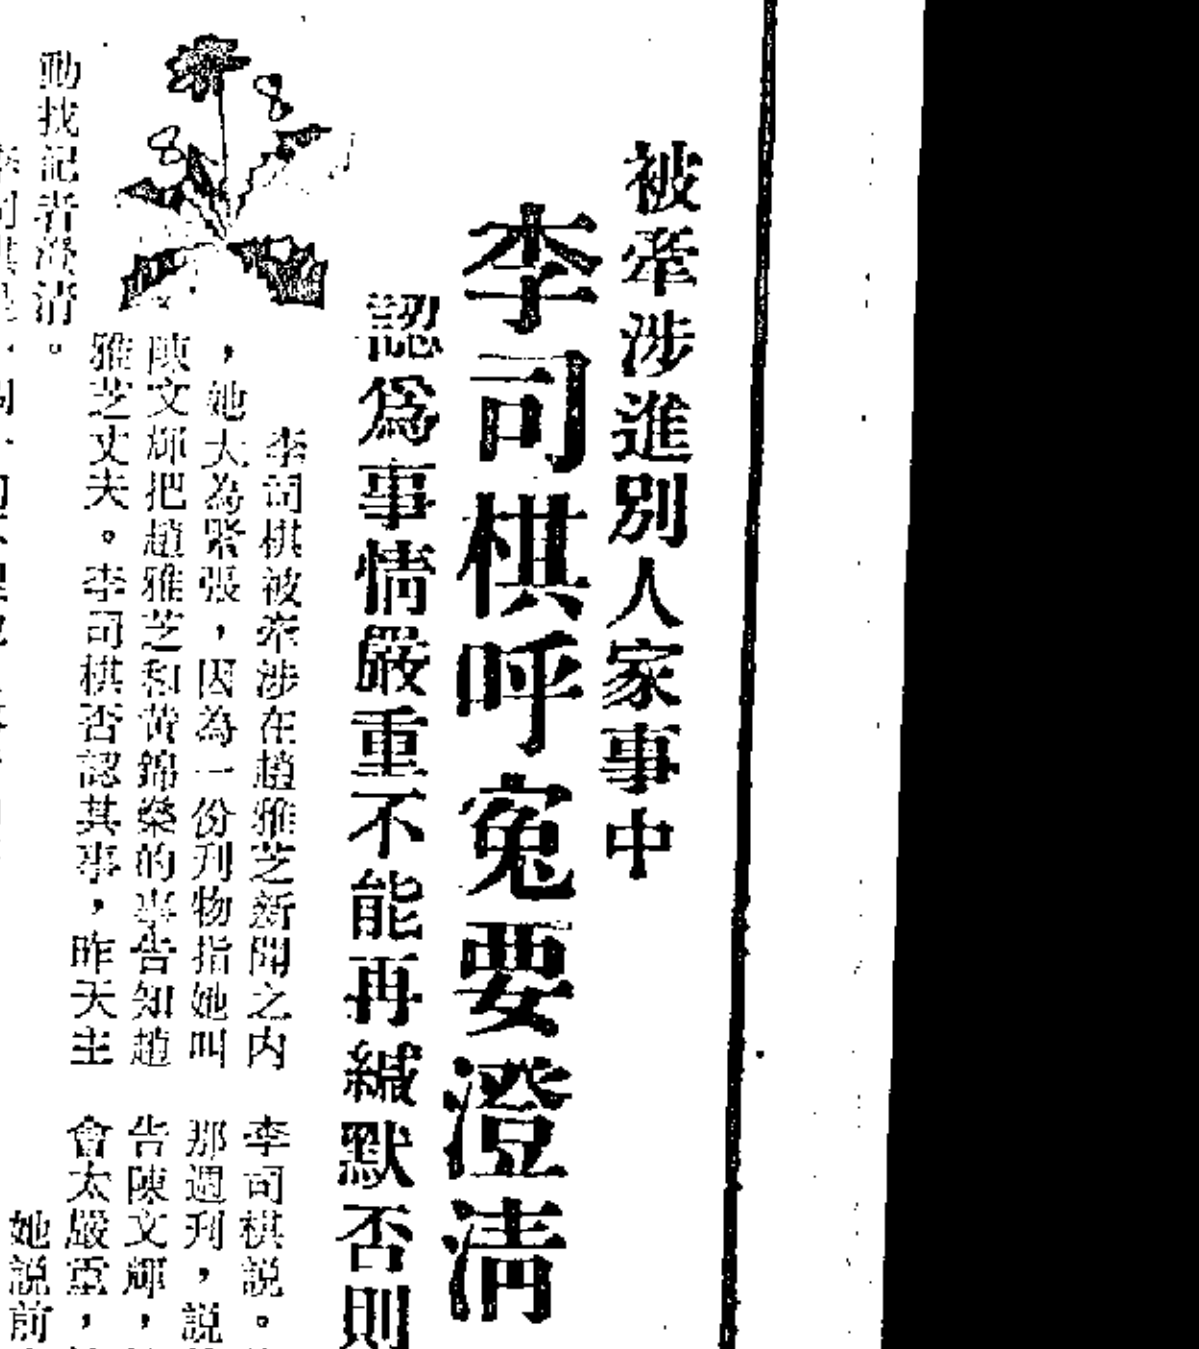 被牽涉進別人家事中
李司棋呼寃要澄清
認爲事情嚴重不能再緘默否則
李司棋被牽涉在趙雅芝新聞之內
，她大為緊張，因為一份刋物指她叫
陳文輝把趙雅芝和黃錦燊的事告知趙
雅芝丈夫。李司棋否認其事，昨天主
動找記者澄清。
李司棋說。
那週刋，說
告陳文輝，
會太嚴重，
她説前